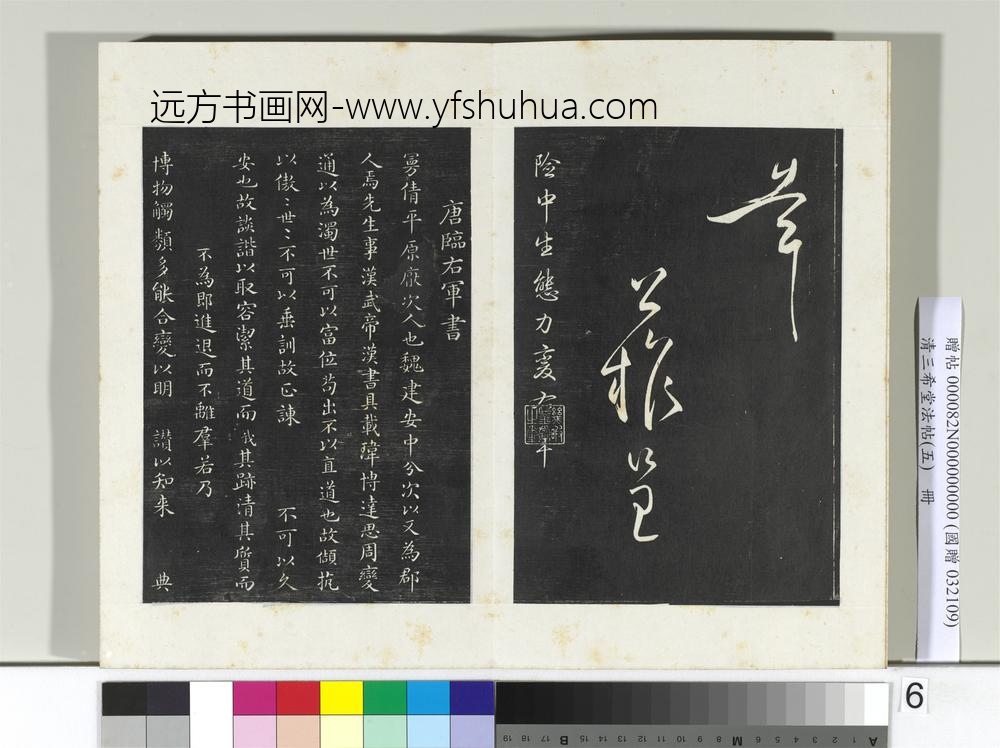 远方书画网-www.yfshuhua.com
险中生態力变
唐臨右軍書
曼倩平原厭次人也魏建安中分次以又為郡
人焉先生事漢武帝漢書具載瑋博達思周變
通以為濁世不可以富位苟出不以直道也故傾抗
以傲〻世〻不可以垂訓故正諫 不可以久
安也故談諧以取容潔其道而 其跡清其質而
不為耶進退而不離羣若乃
博物觸類多能合變以明 讃以知来 典
贈帖 000082N000000000 (國贈 032109)
清三希堂法帖(五) 冊
6
A 1 2 3 4 5 6 M 8 9 10 11 12 13 14 15 B 17 18 19